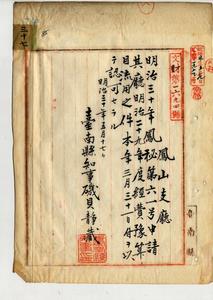 三十七
文財第一六九四號
鳳山支廳
明治三十年鳳秘第六一號申請
其廳明治二十九年度經費豫算
目流用之件本年三月三十一日付ヲ以
テ認可セラル
明治三十年五月十七日
臺南縣知事磯貝靜藏
臺南縣